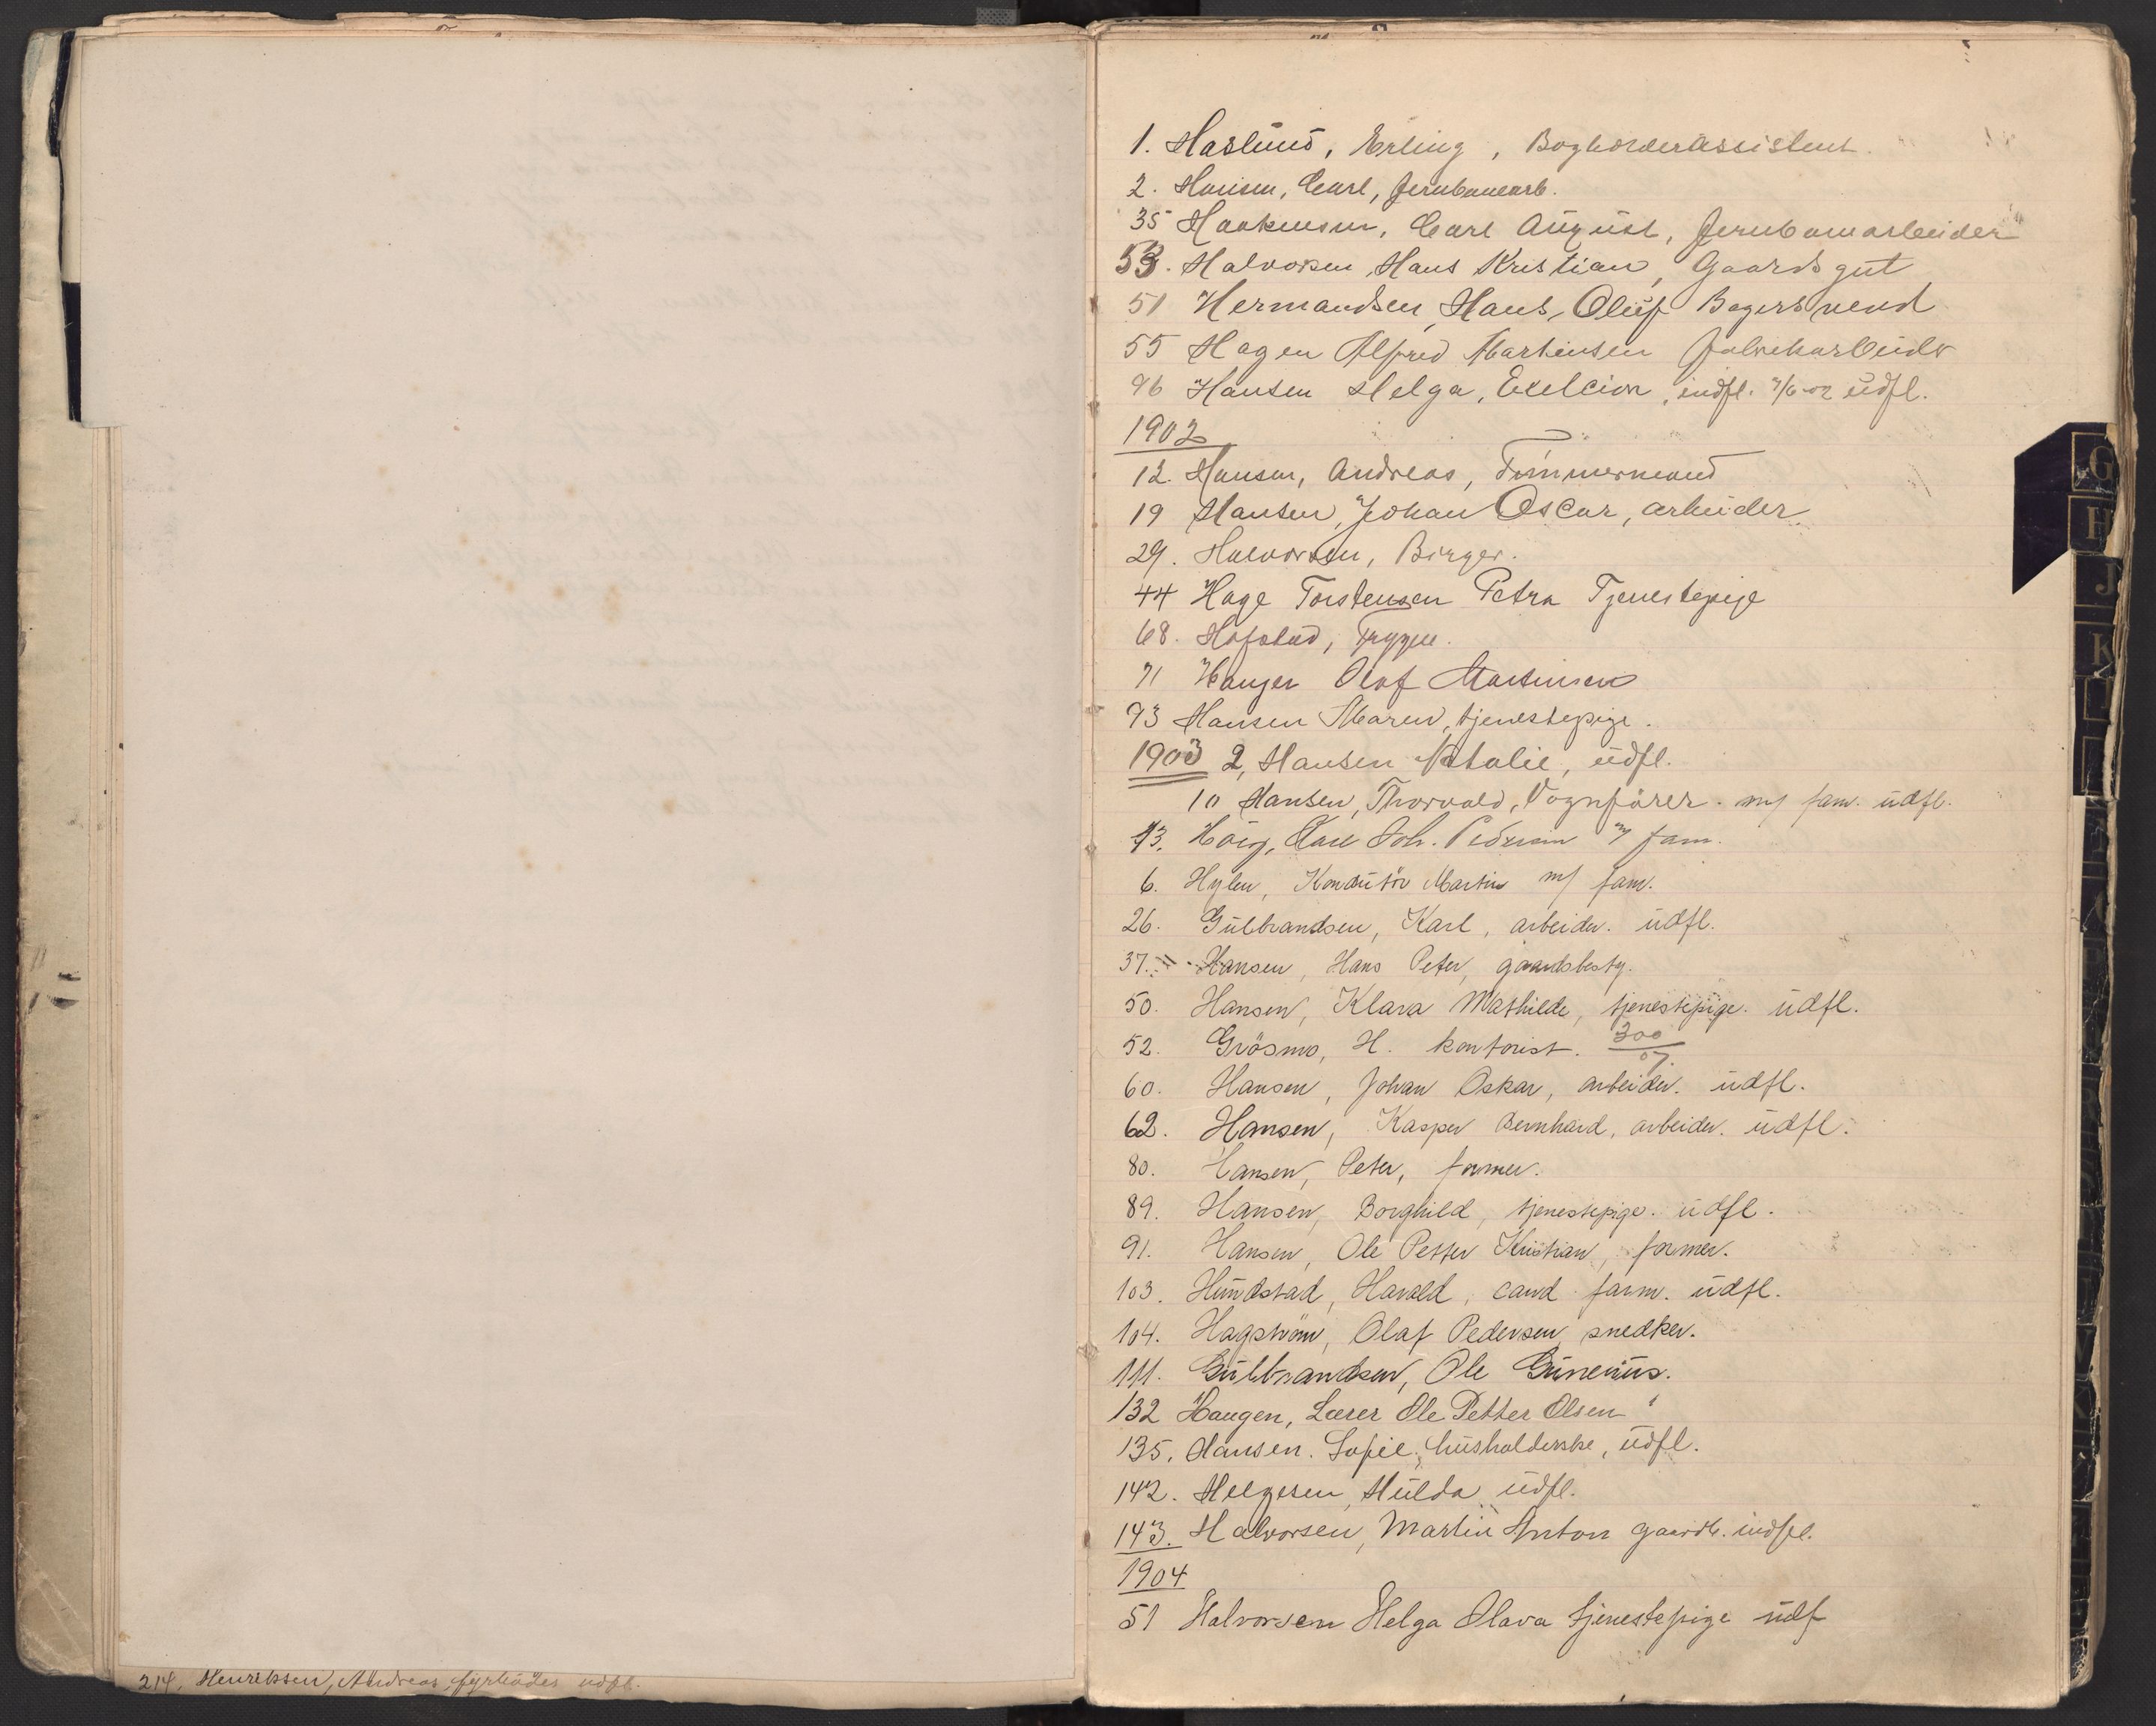 1. Haslund, Erling, Bogholderassistent.
2. Hansen, Carl, Jernbanearb.
35 Haakensen, Carl August, Jernbanearbeider
53. Halvorsen, Hans Kristian, Gaardsgut
51 Hermandsen, Hans, Oluf Bagersvend
55 Hagen Alfred Martinsen
96 Hansen Helga, indfl. 7/6-02 udfl.
1902
12. Hansen, Andreas, Tømmermand
19 Hansen, Johan Oscar, arbeider.
29. Halvorsen, Birger.
44 Hage Torstensen Petra Tjenestepige
68. Hofstad, Trygve.
71 Hauger Olaf Martinsen
93 Hansen Maren, tjenestepige.
1903 2, Hansen Nathalie, udfl.
10 Hansen, Thorvald, Vognfører. m/ fam. udfl.
13. Høig, Karl Joh. Pedersen m/ fam.
6. Hylen, Konduktör Martin m/ fam.
26. Gülbrandsen, Karl, arbeider. üdfl.
37. Hansen, Hans Peter, gaardsbesty.
50. Hansen, Klara Mathilde, tjenestepige. üdfl.
52. Grösmo, H. kontorist. 300/07.
60. Hansen, Johan Oskar, arbeider. üdfl.
62. Hansen, Kasper Bernhard, arbeider. üdfl.
80. Hansen, Peter, former.
89. Hansen, Borghild, tjenestepige. üdfl.
91. Hansen, Ole Petter Kristian, former.
103. Hündstad, Harald, cand. farm. üdfl.
104. Hagström, Olaf Pedersen, snedker.
111. Gülbrandsen, Ole Günerius.
132 Haugen, Lærer Ole Petter Olsen
135. Hansen. Sofie, hüsholderske, üdfl.
142. Helgesen, Hülda üdfl.
143. Halvorsen, Martin Anton gaardb. indfl.
1904
51 Halvorsen Helga Olava tjenestepige üdf
214, Henriksen, Andreas, fyrbøder udfl.